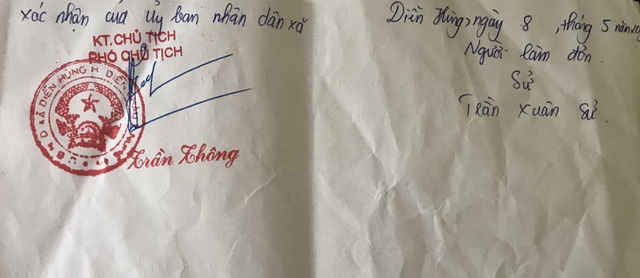 xác nhận của Ủy ban nhân dân xã
KT. CHỦ TỊCH
PHÓ CHỦ TỊCH
Trần Thông
Diễn Hùng, ngày 8, tháng 5 năm
Người làm đơn.
Sử
Trần Xuân Sử.